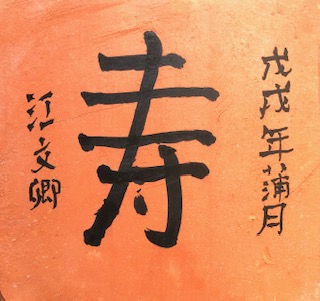 戊戌年蒲月
寿
江文卿